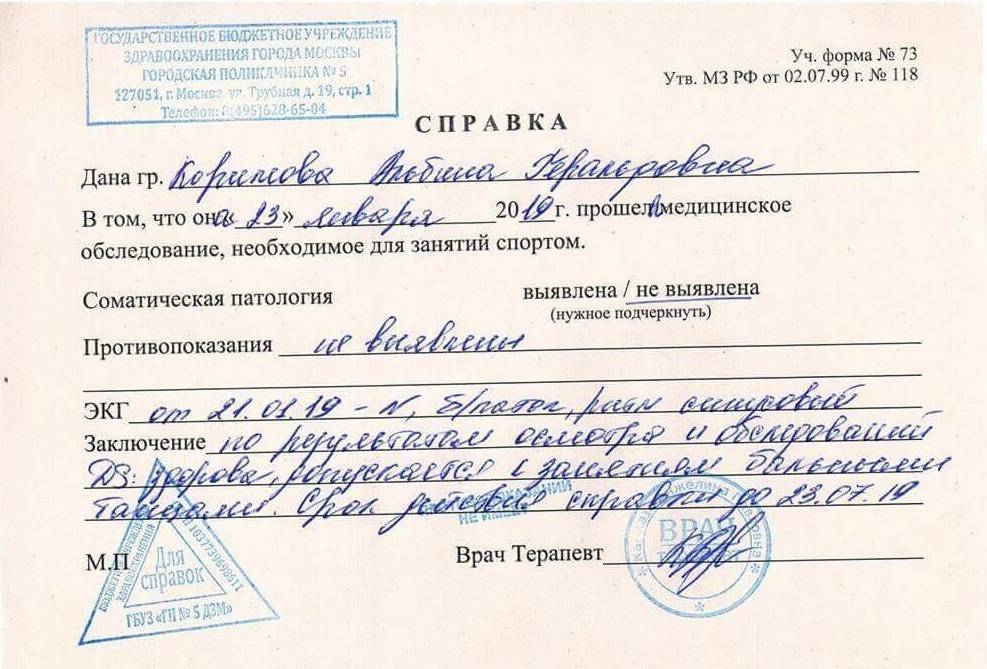 ГОСУДАРСТВЕННОЕ БЮДЖЕТНОЕ УЧРЕЖДЕНИЕ
ЗДРАВООХРАНЕНИЯ ГОРОДА МОСКВЫ
ГОРОДСКАЯ ПОЛИКЛИНИКА № 5
127051, г. Москва, ул. Трубная д. 19, стр. 1
Телефон: 8(495)628-65-04
Уч. форма № 73
Утв. МЗ РФ от 02.07.99 г. № 118
СПРАВКА
Дана гр. Альбина Геральдовна
В том, что она «23» января 2019 г. прошел медицинское
обследование, необходимое для занятий спортом.
Соматическая патология выявлена / не выявлена
(нужное подчеркнуть)
Противопоказания не выявлены
ЭКГ от 21.01.19 – N, б/патол, ритм синусовый
Заключение по результатам осмотра и обследований
DS: здорова, допускается к занятиям бальными
танцами. Срок действия справки до 23.07.19
НЕ ИМЕЕТ
М.П
Врач Терапевт
ВРАЧ
Для
справок
ГБУЗ «ГП № 5 ДЗМ»